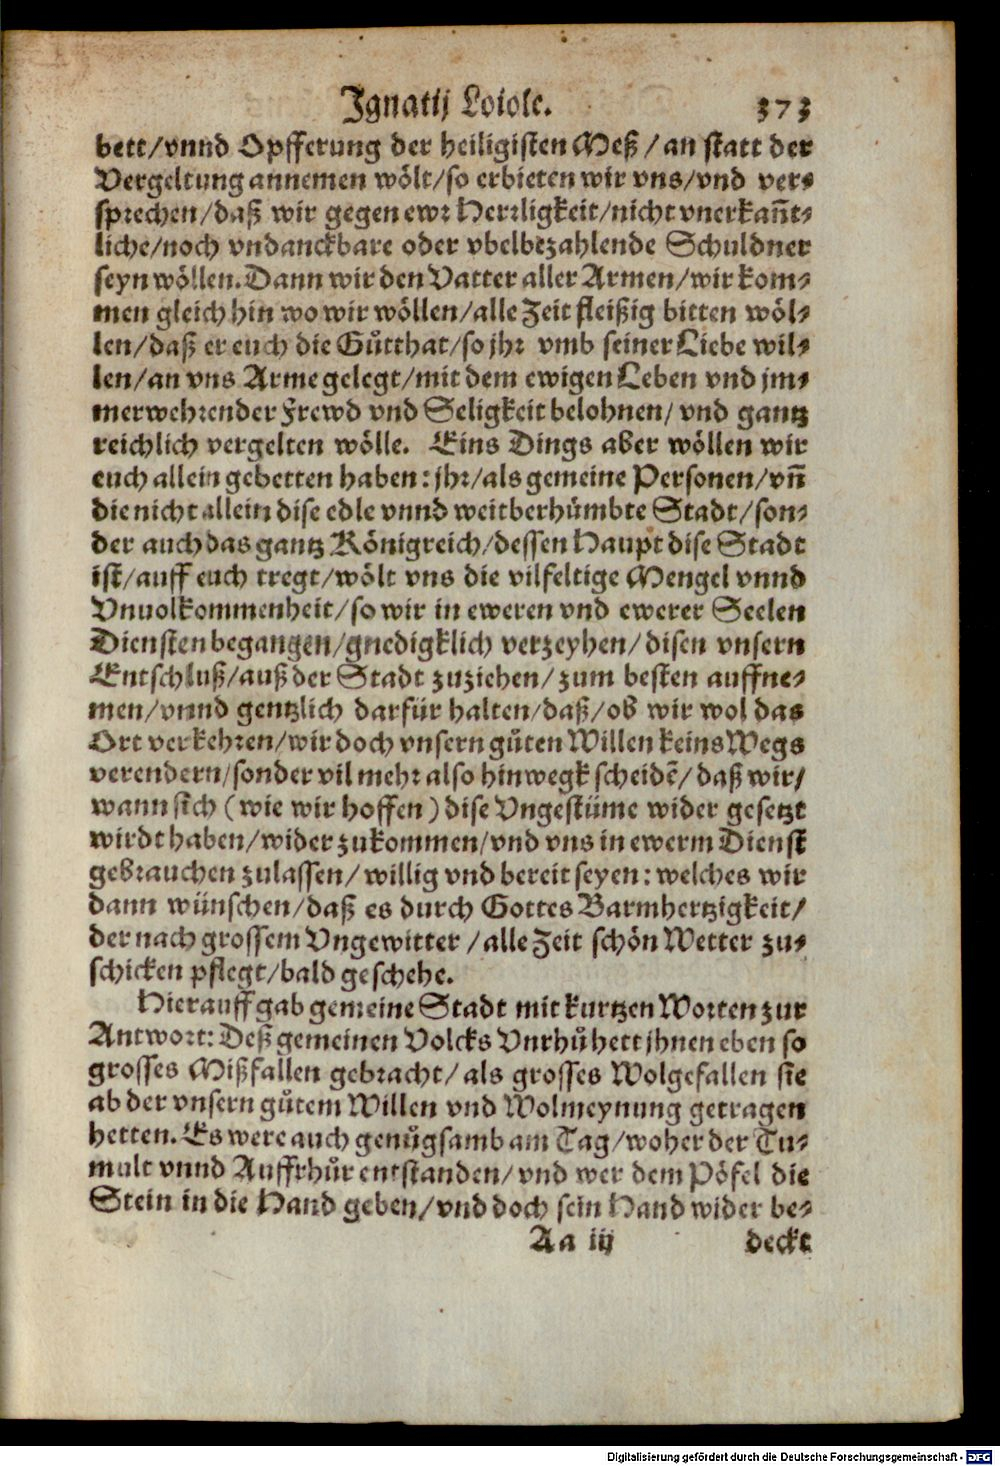 Ignatij Loiole. 373
bett/vnnd Opfferung der heiligisten Meß/an statt der
Vergeltung annemen wölt/so erbieten wir vns/vnd ver-
sprechen/daß wir gegen ewr Herrligkeit/nicht vnerkañt-
liche/noch vndanckbare oder vbelbezahlende Schuldner
seyn wöllen. Dann wir den Vatter aller Armen/wir kom-
men gleich hin wo wir wöllen/alle Zeit fleißig bitten wöl-
len/daß er euch die Gůtthat/so jhr vmb seiner Liebe wil-
len/an vns Arme gelegt/mit dem ewigen Leben vnd jm-
merwehrender Frewd vnd Seligkeit belohnen/vnd gantz
reichlich vergelten wölle. Eins Dings aber wöllen wir
euch allein gebetten haben: jhr/als gemeine Personen/vñ
die nicht allein dise edle vnnd weitberhümbte Stadt/son-
der auch das gantz Königreich/dessen Haupt dise Stadt
ist/auff euch tregt/wölt vns die vilfeltige Mengel vnnd
Vnuolkommenheit/so wir in eweren vnd ewerer Seelen
Diensten begangen/gnedigklich verzeyhen/disen vnsern
Entschluß/auß der Stadt zuziehen/zum besten auffne-
men/vnnd gentzlich darfür halten/daß/ob wir wol das
Ort verkehren/wir doch vnsern gůten Willen keins Wegs
verendern/sonder vil mehr also hinwegk scheidẽ/daß wir/
wann sich (wie wir hoffen) dise Vngestüme wider gesetzt
wirdt haben/wider zukommen/vnd vns in ewerm Dienst
gebrauchen zulassen/willig vnd bereit seyen: welches wir
dann wünschen/daß es durch Gottes Barmhertzigkeit/
der nach grossem Vngewitter/alle Zeit schön Wetter zu-
schicken pflegt/bald geschehe.
Hierauff gab gemeine Stadt mit kurtzen Worten zur
Antwort: Deß gemeinen Volcks Vnrhů hett jhnen eben so
grosses Mißfallen gebracht/als grosses Wolgefallen sie
ab der vnsern gůtem Willen vnd Wolmeynung getragen
hetten. Es were auch genůgsamb am Tag/woher der Tu-
mult vnnd Auffrhůr entstanden/vnd wer dem Pöfel die
Stein in die Hand geben/vnd doch sein Hand wider be-
Aa iij deckt
Digitalisierung gefördert durch die Deutsche Forschungsgemeinschaft - DFG